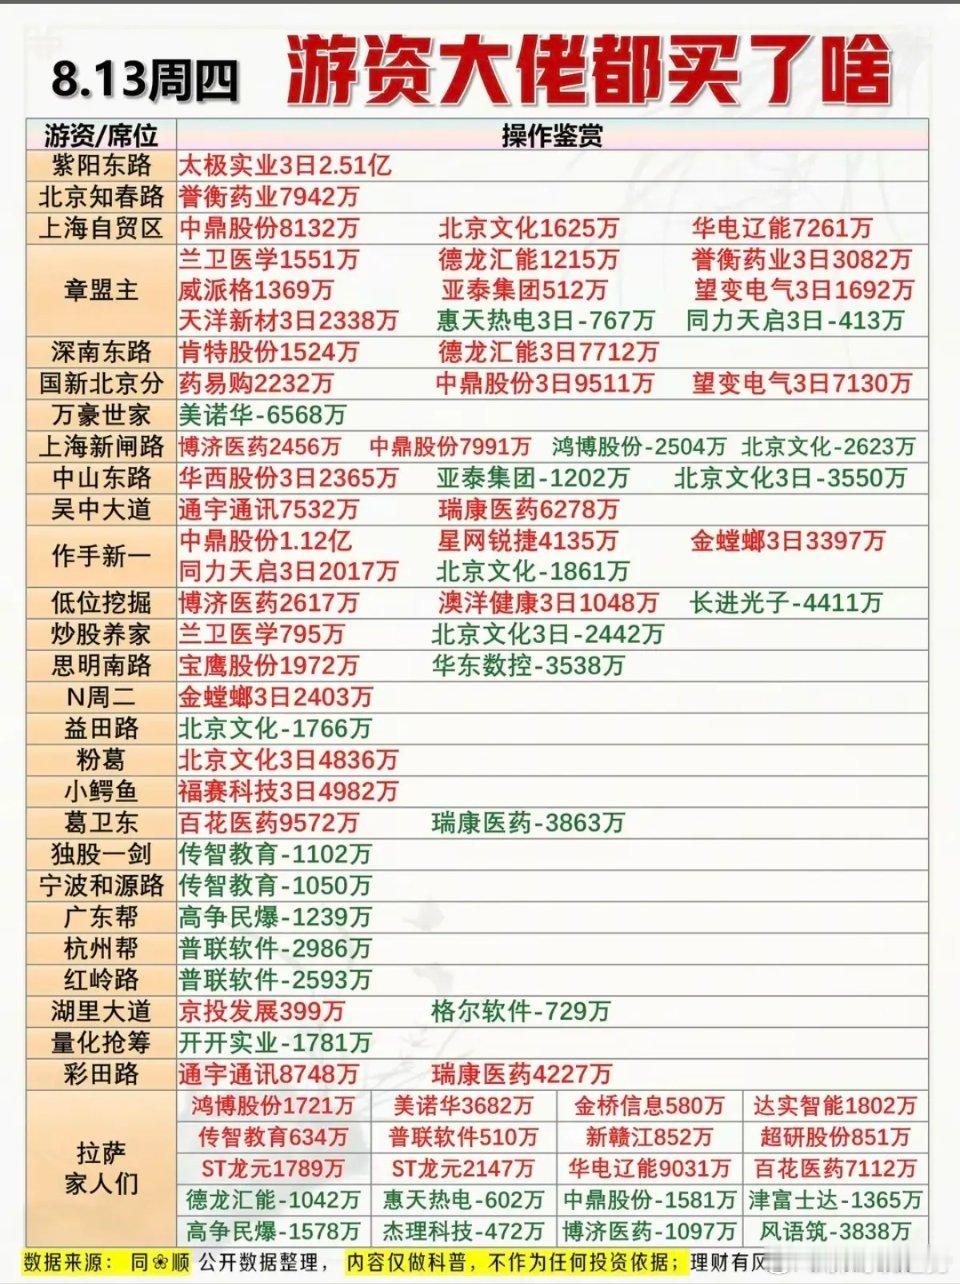 8.13周四 游资大佬都买了啥
游资/席位 操作鉴赏
紫阳东路 太极实业3日2.51亿
北京知春路 誉衡药业7942万
上海自贸区 中鼎股份8132万 北京文化1625万 华电辽能7261万
章盟主 兰卫医学1551万 德龙汇能1215万 誉衡药业3日3082万
威派格1369万 亚泰集团512万 望变电气3日1692万
天洋新材3日2338万 惠天热电3日-767万 同力天启3日-413万
深南东路 肯特股份1524万 德龙汇能3日7712万
国新北京分 药易购2232万 中鼎股份3日9511万 望变电气3日7130万
万豪世家 美诺华-6568万
上海新闸路 博济医药2456万 中鼎股份7991万 鸿博股份-2504万 北京文化-2623万
中山东路 华西股份3日2365万 亚泰集团-1202万 北京文化3日-3550万
吴中大道 通宇通讯7532万 瑞康医药6278万
作手新一 中鼎股份1.12亿 星网锐捷4135万 金螳螂3日3397万
同力天启3日2017万 北京文化-1861万
低位挖掘 博济医药2617万 澳洋健康3日1048万 长进光子-4411万
炒股养家 兰卫医学795万 北京文化3日-2442万
思明南路 宝鹰股份1972万 华东数控-3538万
N周二 金螳螂3日2403万
益田路 北京文化-1766万
粉葛 北京文化3日4836万
小鳄鱼 福赛科技3日4982万
葛卫东 百花医药9572万 瑞康医药-3863万
独股一剑 传智教育-1102万
宁波和源路 传智教育-1050万
广东帮 高争民爆-1239万
杭州帮 普联软件-2986万
红岭路 普联软件-2593万
湖里大道 京投发展399万 格尔软件-729万
量化抢筹 开开实业-1781万
彩田路 通宇通讯8748万 瑞康医药4227万
拉萨家人们 鸿博股份1721万 美诺华3682万 金桥信息580万 达实智能1802万
传智教育634万 普联软件510万 新赣江852万 超研股份851万
ST龙元1789万 ST龙元2147万 华电辽能9031万 百花医药7112万
德龙汇能-1042万 惠天热电-602万 中鼎股份-1581万 津富士达-1365万
高争民爆-1578万 杰理科技-472万 博济医药-1097万 风语筑-3838万
数据来源： 同❀顺 公开数据整理， 内容仅做科普，不作为任何投资依据；理财有风